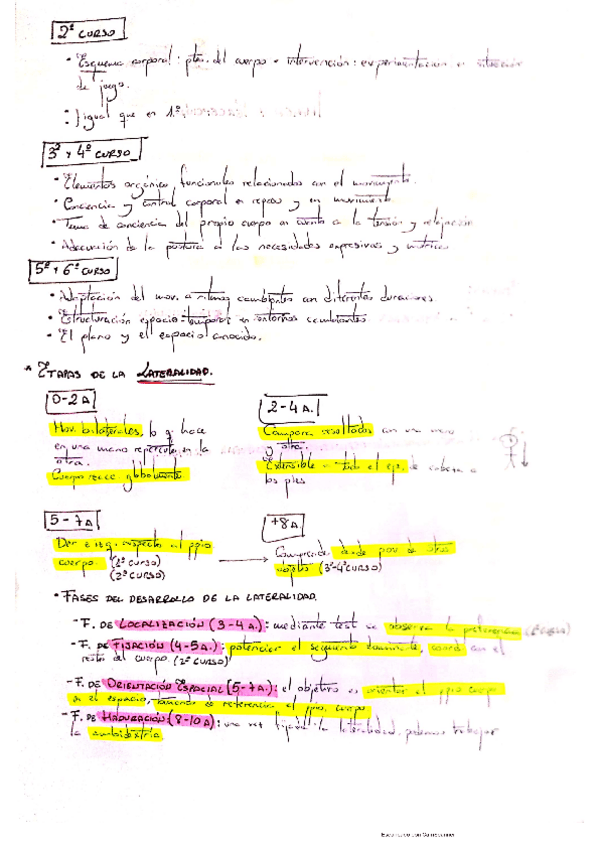 2º CURSO
· Esquema corporal: ptes. del cuerpo e intervención: experimentación en situación
de juego.
: } igual que en 1º
3º Y 4º CURSO
· Elementos orgánico funcionales relacionados con el movimiento.
· Conciencia y control corporal en reposo y en movimiento
· Toma de conciencia del propio cuerpo en cuanto a la tensión y relajación
· Adecuación de la postura a las necesidades expresivas y motrices
5º Y 6º CURSO
· Adaptación del mov. a ritmos cambiantes con diferentes duraciones.
· Estructuración espacio-temporal en entornos cambiantes
· El plano y el espacio conocido.
* ETAPAS DE LA LATERALIDAD.
0-2 A
Mov. bilaterales, lo q hace
en una mano repercute en la
otra.
Cuerpo reacc. globalmente
2-4 A.
Compara resultados con una mano
y otra.
Extensible a todo el eje, de cabeza a
los pies
5-7A
Der e izq. respecto al ppio
cuerpo. (2º CURSO)
(2º CURSO)
+8A.
Comprende desde pov de otros
objetos (3º-4º CURSO)
· FASES DEL DESARROLLO DE LA LATERALIDAD.
- F. DE LOCALIZACIÓN (3-4 A.): mediante test se observa la preferencia
- F. DE FIJACIÓN (4-5A.): potenciar el segmento dominante, coord con el
resto del cuerpo. (2º CURSO)
- F. DE ORIENTACIÓN ESPACIAL (5-7A.): el objetivo es orientar el ppio cuerpo
en el espacio, tomando de referencia el ppio. cuerpo
- F. DE MADURACIÓN (8-10 A): una vez fijada la lateralidad, podemos trabajar
la ambidextria.
Escaneado con CamScanner